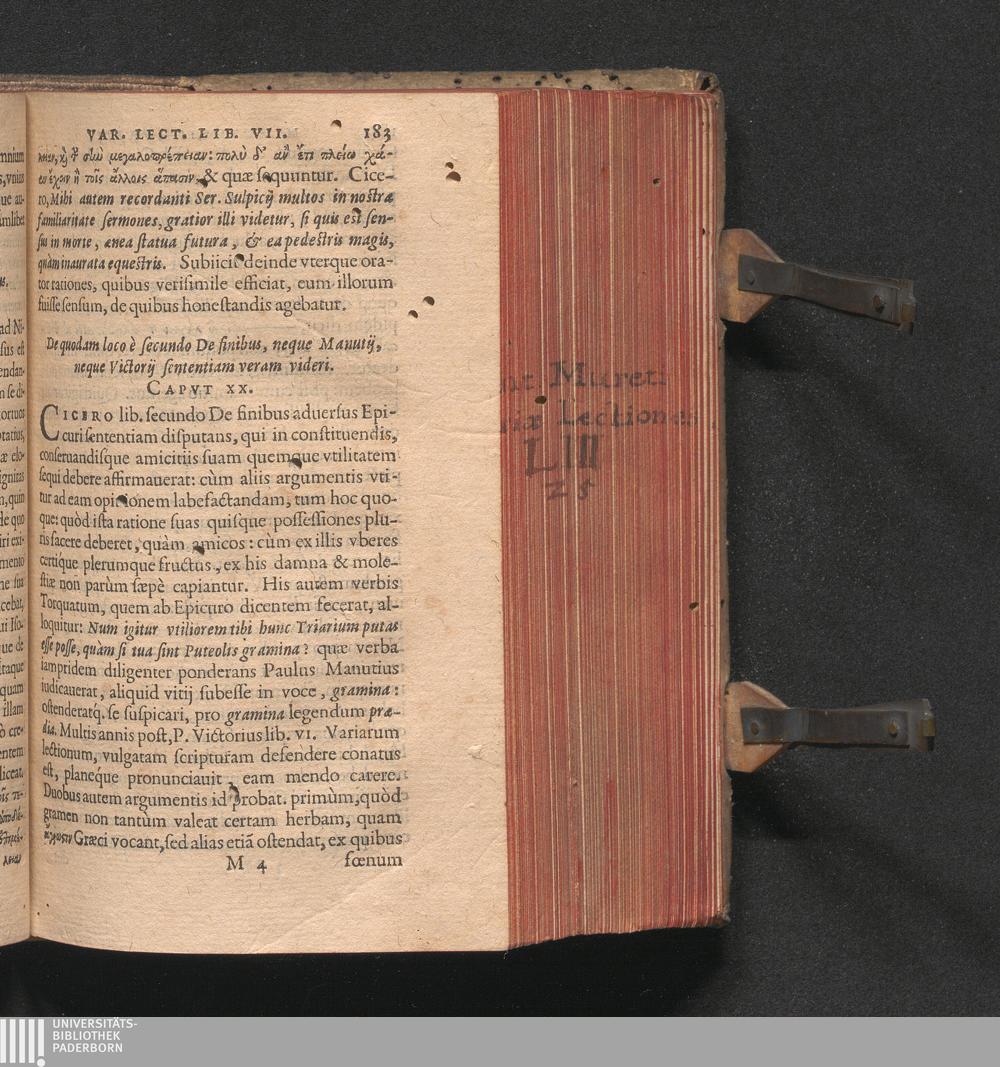 VAR. LECT. LIB. VII. 183
μεγαλοπρέπειαν: πολὺ δ' ἂν ἔτι πλείω χά-
ἔχοιν ἢ τοῖς ἄλλοις ἅπασιν, & quæ sequuntur. Cice-
ro, Mihi autem recordanti Ser. Sulpicij multos in nostra
familiaritate sermones, gratior illi videtur, si quis est sen-
sus in morte, ænea statua futura, & ea pedestris magis,
quàm inaurata equestris. Subiicit deinde vterque ora-
tor rationes, quibus verisimile efficiat, eum illorum
fuisse sensum, de quibus honestandis agebatur.
De quodam loco è secundo De finibus, neque Manutij,
neque Victorij sententiam veram videri.
CAPVT XX.
CICERO lib. secundo De finibus aduersus Epi-
curi sententiam disputans, qui in constituendis,
conseruandisque amicitiis suam quemque vtilitatem
sequi debere affirmauerat: cùm aliis argumentis vti-
tur ad eam opinionem labefactandam, tum hoc quo-
que: quòd ista ratione suas quisque possessiones plu-
ris facere deberet, quàm amicos: cùm ex illis vberes
certíque plerumque fructus, ex his damna & mole-
stiæ non parùm sæpè capiantur. His autem verbis
Torquatum, quem ab Epicuro dicentem fecerat, al-
loquitur: Num igitur vtiliorem tibi hunc Triarium putas
esse posse, quàm si tua sint Puteolis gramina? quæ verba
iampridem diligenter ponderans Paulus Manutius
iudicauerat, aliquid vitij subesse in voce, gramina:
ostenderatq́. se suspicari, pro gramina legendum præ-
dia. Multis annis post, P. Victorius lib. VI. Variarum
lectionum, vulgatam scripturam defendere conatus
est, planéque pronunciauit, eam mendo carere.
Duobus autem argumentis id probat. primùm, quòd
gramen non tantùm valeat certam herbam, quam
ἄγρωστιν Græci vocant, sed alias etiã ostendat, ex quibus
M 4 fœnum
Mureti
Lectiones
LIII
25
UNIVERSITÄTS-
BIBLIOTHEK
PADERBORN